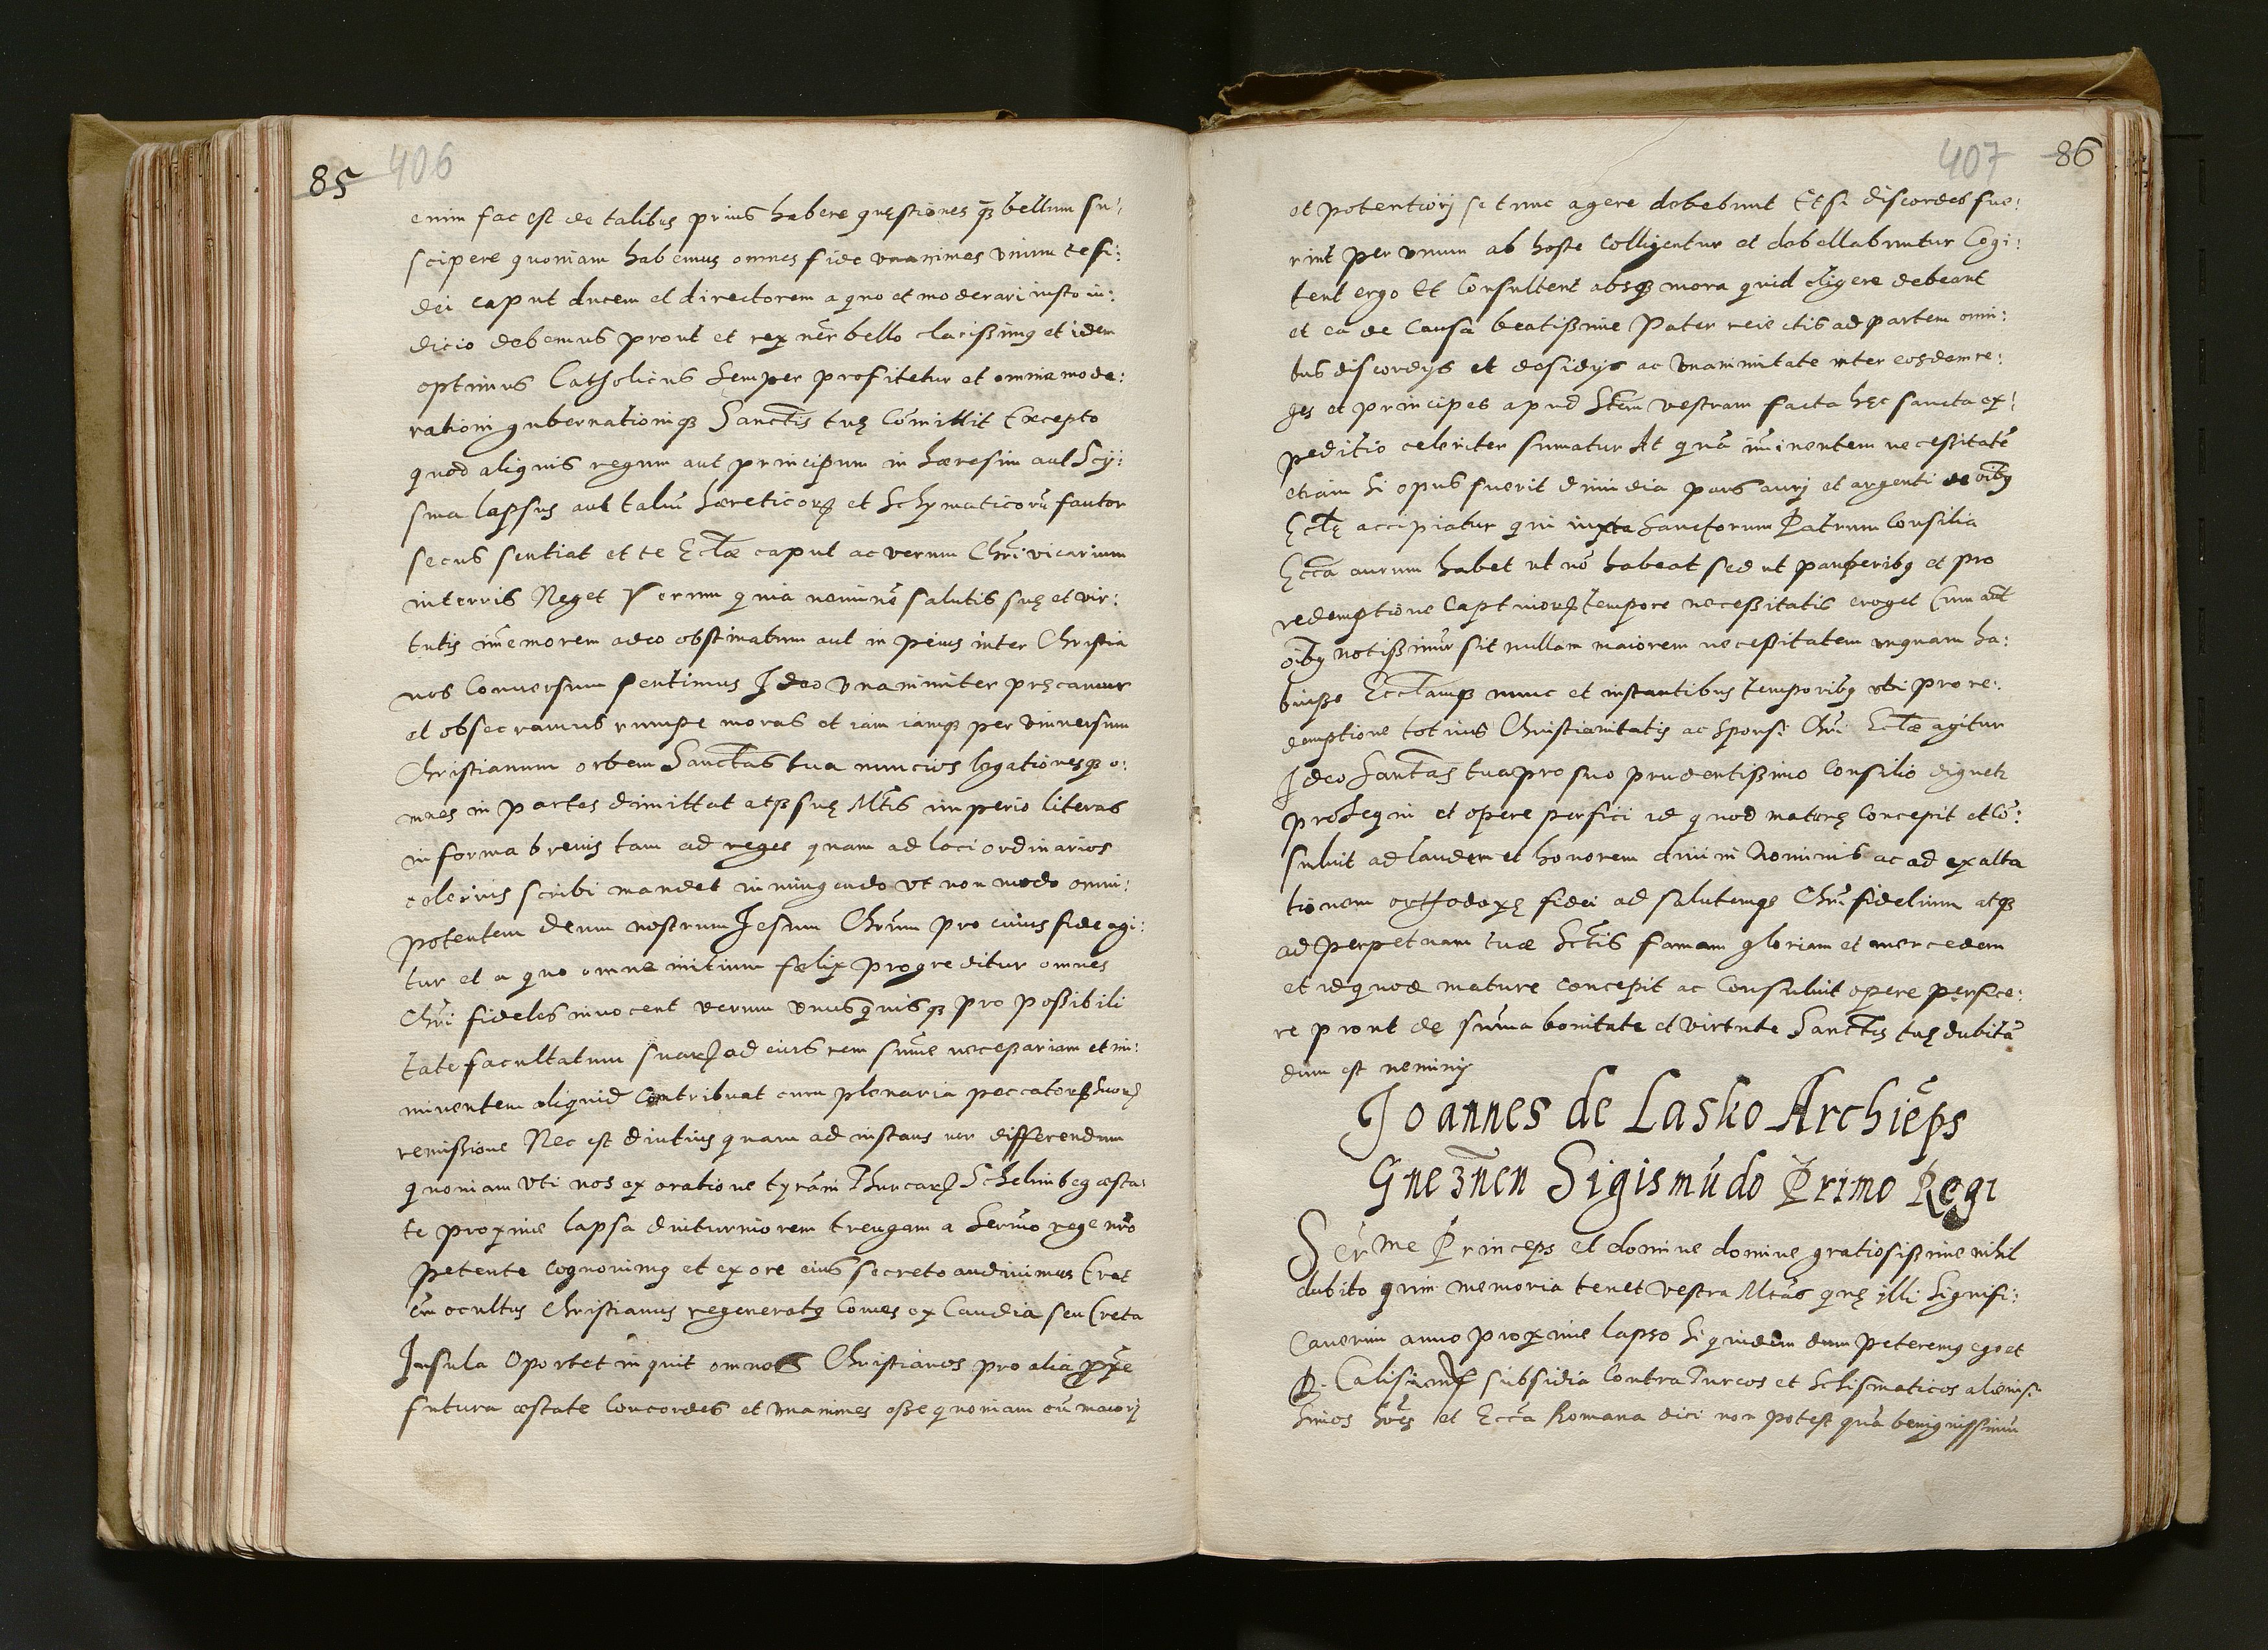 85 406
enim fac est de talibus prius habere quęstiones q̃ȝ bellum su:
scipere quoniam habemus omnes fide vnanimes vnum te fi:
dei caput ducem et directorem a quo et moderari iusto iu:
dicio debemus prout et rex nr̃ bello clarißimus et idem
optimus Catholicus Semper profitetur et omnia mode:
rationi gubernationiqȝ Sanctis tuę Com̃ittit Excepto
quod aliquis regum aut principum in hæresim aut Scy:
sma lapsus aut taliũ hæreticorꝝ et Schysmaticorũ fautor
secus sentiat et te Ecl̃æ caput ac verum Chr̃i vicarium
in terris Neget Verum quia neminẽ salutis suę et vir:
tutis im̃emorem adeo obstinatum aut in peius inter Christia
nos Conuersum sentimus Ideo vnanimiter pręcamur
et obsecramus rumpe moras et iam iamqȝ per vniuersum
Christianum orbem Sanctas tua nuncios legationesqȝ o:
mnes in partes dimittat atqȝ suę Mtis imperio literas
in forma breuis tam ad reges quam ad loci ordinarios
celerius scribi mandet iniungendo vt non modo omni:
potentem deum nostrum Jesum Chrũm pro cuius fide agi:
tur et a quo omne initium fælix progreditur omnes
Chr̃i fideles inuocent verum vnusquisqȝ pro poßibili
tate facultatum suarꝝ ad eius rem sum̃e neceßariam et im:
minentem aliquid Contribuat cum plenaria peccatorꝝ suorꝝ
remißione Nec est diutius quam ad instans ver differendum
quoniam vti nos ex oratione tyram̃ Thurcarꝝ Schelimbeg æsta:
te proxime lapsa diuturniorem treugam a Serm̃o rege nr̃o
petente cognouimus et ex ore eius secreto audiuimus Erat
em̃ ocultus Christianus regeneratus Comes ex Candia seu Creta
Insula Oportet inquit omnes Christianos pro alia pxẽ
futura æstate Concordes et vnanimes eße quoniam cũ maiorj

407 86
et potentiorj se tunc agere debebunt Et si discordes fue:
rint per vnum ab hoste Colligentur et debellabuntur Cogi:
tent ergo Et Consultent absqȝ mora quid eligere debeant
et ea de Causa beatißime Pater reiectis ad partem omni:
bus discordijs et desidijs ac vnanimitate inter eosdem re:
ges et principes apud Stem vestram facta hęc sancta ex:
peditio celeriter sumatur At quã im̃inentem neceßitatẽ
etiam Si opus fuerit dimidia pars aurj et argenti de oib9
Ecl̃ę accipiatur qui iuxta Sanctorum Patrum Consilia
Ecca aurum habet vt nõ habeat sed vt pauperib9 et pro
redemptione Captiuorꝝ tempore neceßitatis eroget Cum aũt
oib9 notißimũ sit nullam maiorem neceßitatem vnquam ha:
buiße Eccl̃amqȝ nunc et instantibus temporib9 vbi pro re:
demptione totius Christianitatis ac sponsi Chr̃i Ecl̃æ agitur
Ideo Sanctas tua pro suo prudentißimo Consilio dignetr
prosequi et opere perfici id quod maturę Concepit et Cõ:
suluit ad laudem et honorem diuini Nominis ac ad exalta
tionem orthodoxę fidei ad salutemqȝ Chr̃i fidelium atqȝ
ad perpetuam tuæ Sctis famam gloriam et mercedem
et id quod mature concepit ac Consuluit opere perfice:
re prout de sum̃a bonitate et virtute Sanctis tuę dubitã
dum est neminj
Joannes de Lasko Archiẽps
Gnezñen Sigismũdo Primo Regi
Ser̃me Princeps et domine domine gratiosißime nihil
dubito quin memoria tenet vestra Mtas quę illi Signifi:
Cauerim anno proxime lapso Siquidem dum peteremus ego et
D. Calisien subsidia Contra Turcos et Schismaticos alienis:
simos hoẽs et Ecca Romana dici non potest quã benignissimũ